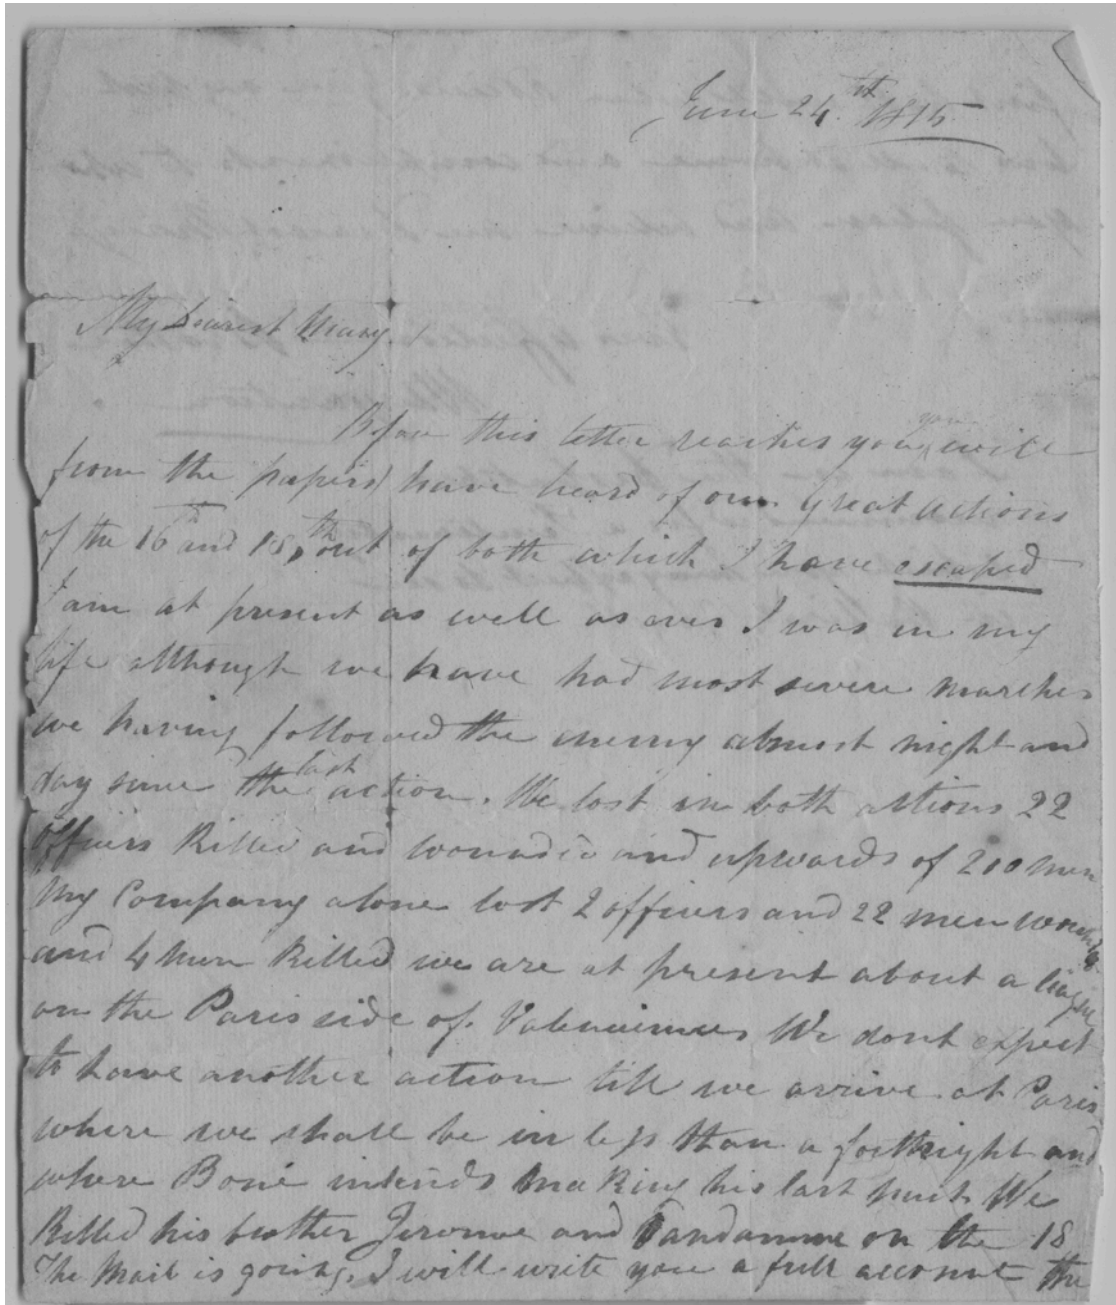 June 24th 1815
My Dearest Mary,
Before this letter reaches you, you will
from the papers have heard of our great actions
of the 16th and 18,th out of both which I have escaped
I am at present as well as ever I was in my
life although we have had most severe marches
we having followed the enemy almost night and
day since the last action. We lost in both actions 22
officers Killed and wounded and upwards of 200 men
My Company alone lost 2 officers and 22 men wounded
and 4 men Killed we are at present about a league
on the Paris side of Valenciennes We dont expect
to have another action till we arrive at Paris
where we shall be in less than a fortnight and
where Boné intends making his last We
Killed his brother Jerome and Vandamme on the 18
The Mail is going, I will write you a full account the